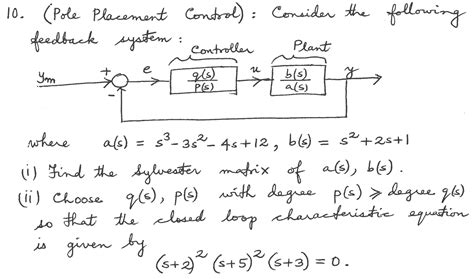 10. (Pole Placement Control): Consider the following
feedback system:
Controller
Plant
ym + e q(s) u b(s) y
- p(s) a(s)
where a(s) = s³-3s²-4s+12, b(s) = s²+2s+1
(i) Find the Sylvester matrix of a(s), b(s).
(ii) Choose q(s), p(s) with degree p(s) ⩾ degree q(s)
so that the closed loop characteristic equation
is given by
(s+2)² (s+5)² (s+3) = 0.